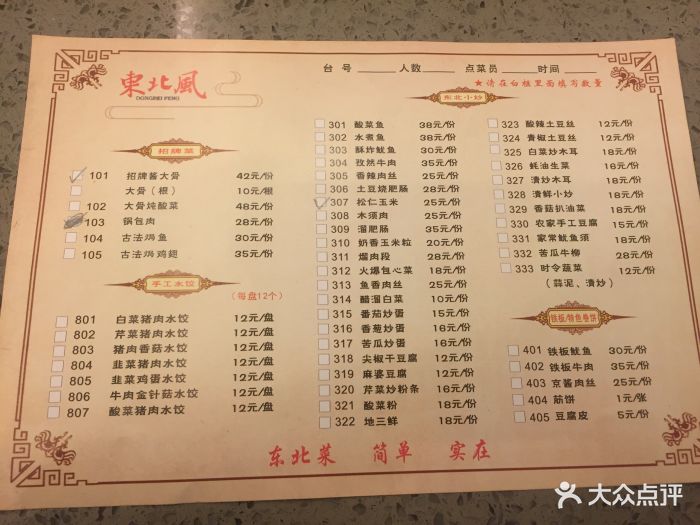 東北風
DONGBEI FENG
台号 人数 点菜员 时间
★请在白框里面填写数量
招牌菜
101 招牌酱大骨 42元/份
大骨（根） 10元/根
102 大骨炖酸菜 48元/份
103 锅包肉 28元/份
104 古法焗鱼 30元/份
105 古法焗鸡翅 35元/份
手工水饺
（每盘12个）
801 白菜猪肉水饺 12元/盘
802 芹菜猪肉水饺 12元/盘
803 猪肉香菇水饺 12元/盘
804 韭菜猪肉水饺 12元/盘
805 韭菜鸡蛋水饺 12元/盘
806 牛肉金针菇水饺 12元/盘
807 酸菜猪肉水饺 12元/盘
东北小炒
301 酸菜鱼 38元/份
302 水煮鱼 38元/份
303 酥炸鱿鱼 30元/份
304 孜然牛肉 35元/份
305 香辣肉丝 25元/份
306 土豆烧肥肠 28元/份
307 松仁玉米 25元/份
308 木须肉 25元/份
309 溜肥肠 28元/份
310 奶香玉米粒 20元/份
311 熘肉段 28元/份
312 火爆包心菜 18元/份
313 鱼香肉丝 25元/份
314 醋溜白菜 10元/份
315 番茄炒蛋 15元/份
316 香葱炒蛋 16元/份
317 苦瓜炒蛋 16元/份
318 尖椒干豆腐 18元/份
319 麻婆豆腐 12元/份
320 芹菜炒粉条 16元/份
321 酸菜粉 18元/份
322 地三鲜 18元/份
323 酸辣土豆丝 12元/份
324 青椒土豆丝 12元/份
325 白菜炒木耳 18元/份
326 蚝油生菜 16元/份
327 清炒木耳 18元/份
328 清鲜小炒 18元/份
329 香菇扒油菜 18元/份
330 农家手工豆腐 15元/份
331 家常鱿鱼须 18元/份
332 苦瓜牛柳 28元/份
333 时令蔬菜 12元/份
（蒜泥、清炒）
铁板/特色卷饼
401 铁板鱿鱼 30元/份
402 铁板牛肉 35元/份
403 京酱肉丝 25元/份
404 筋饼 1元/张
405 豆腐皮 5元/份
东北菜 简单 实在
大众点评